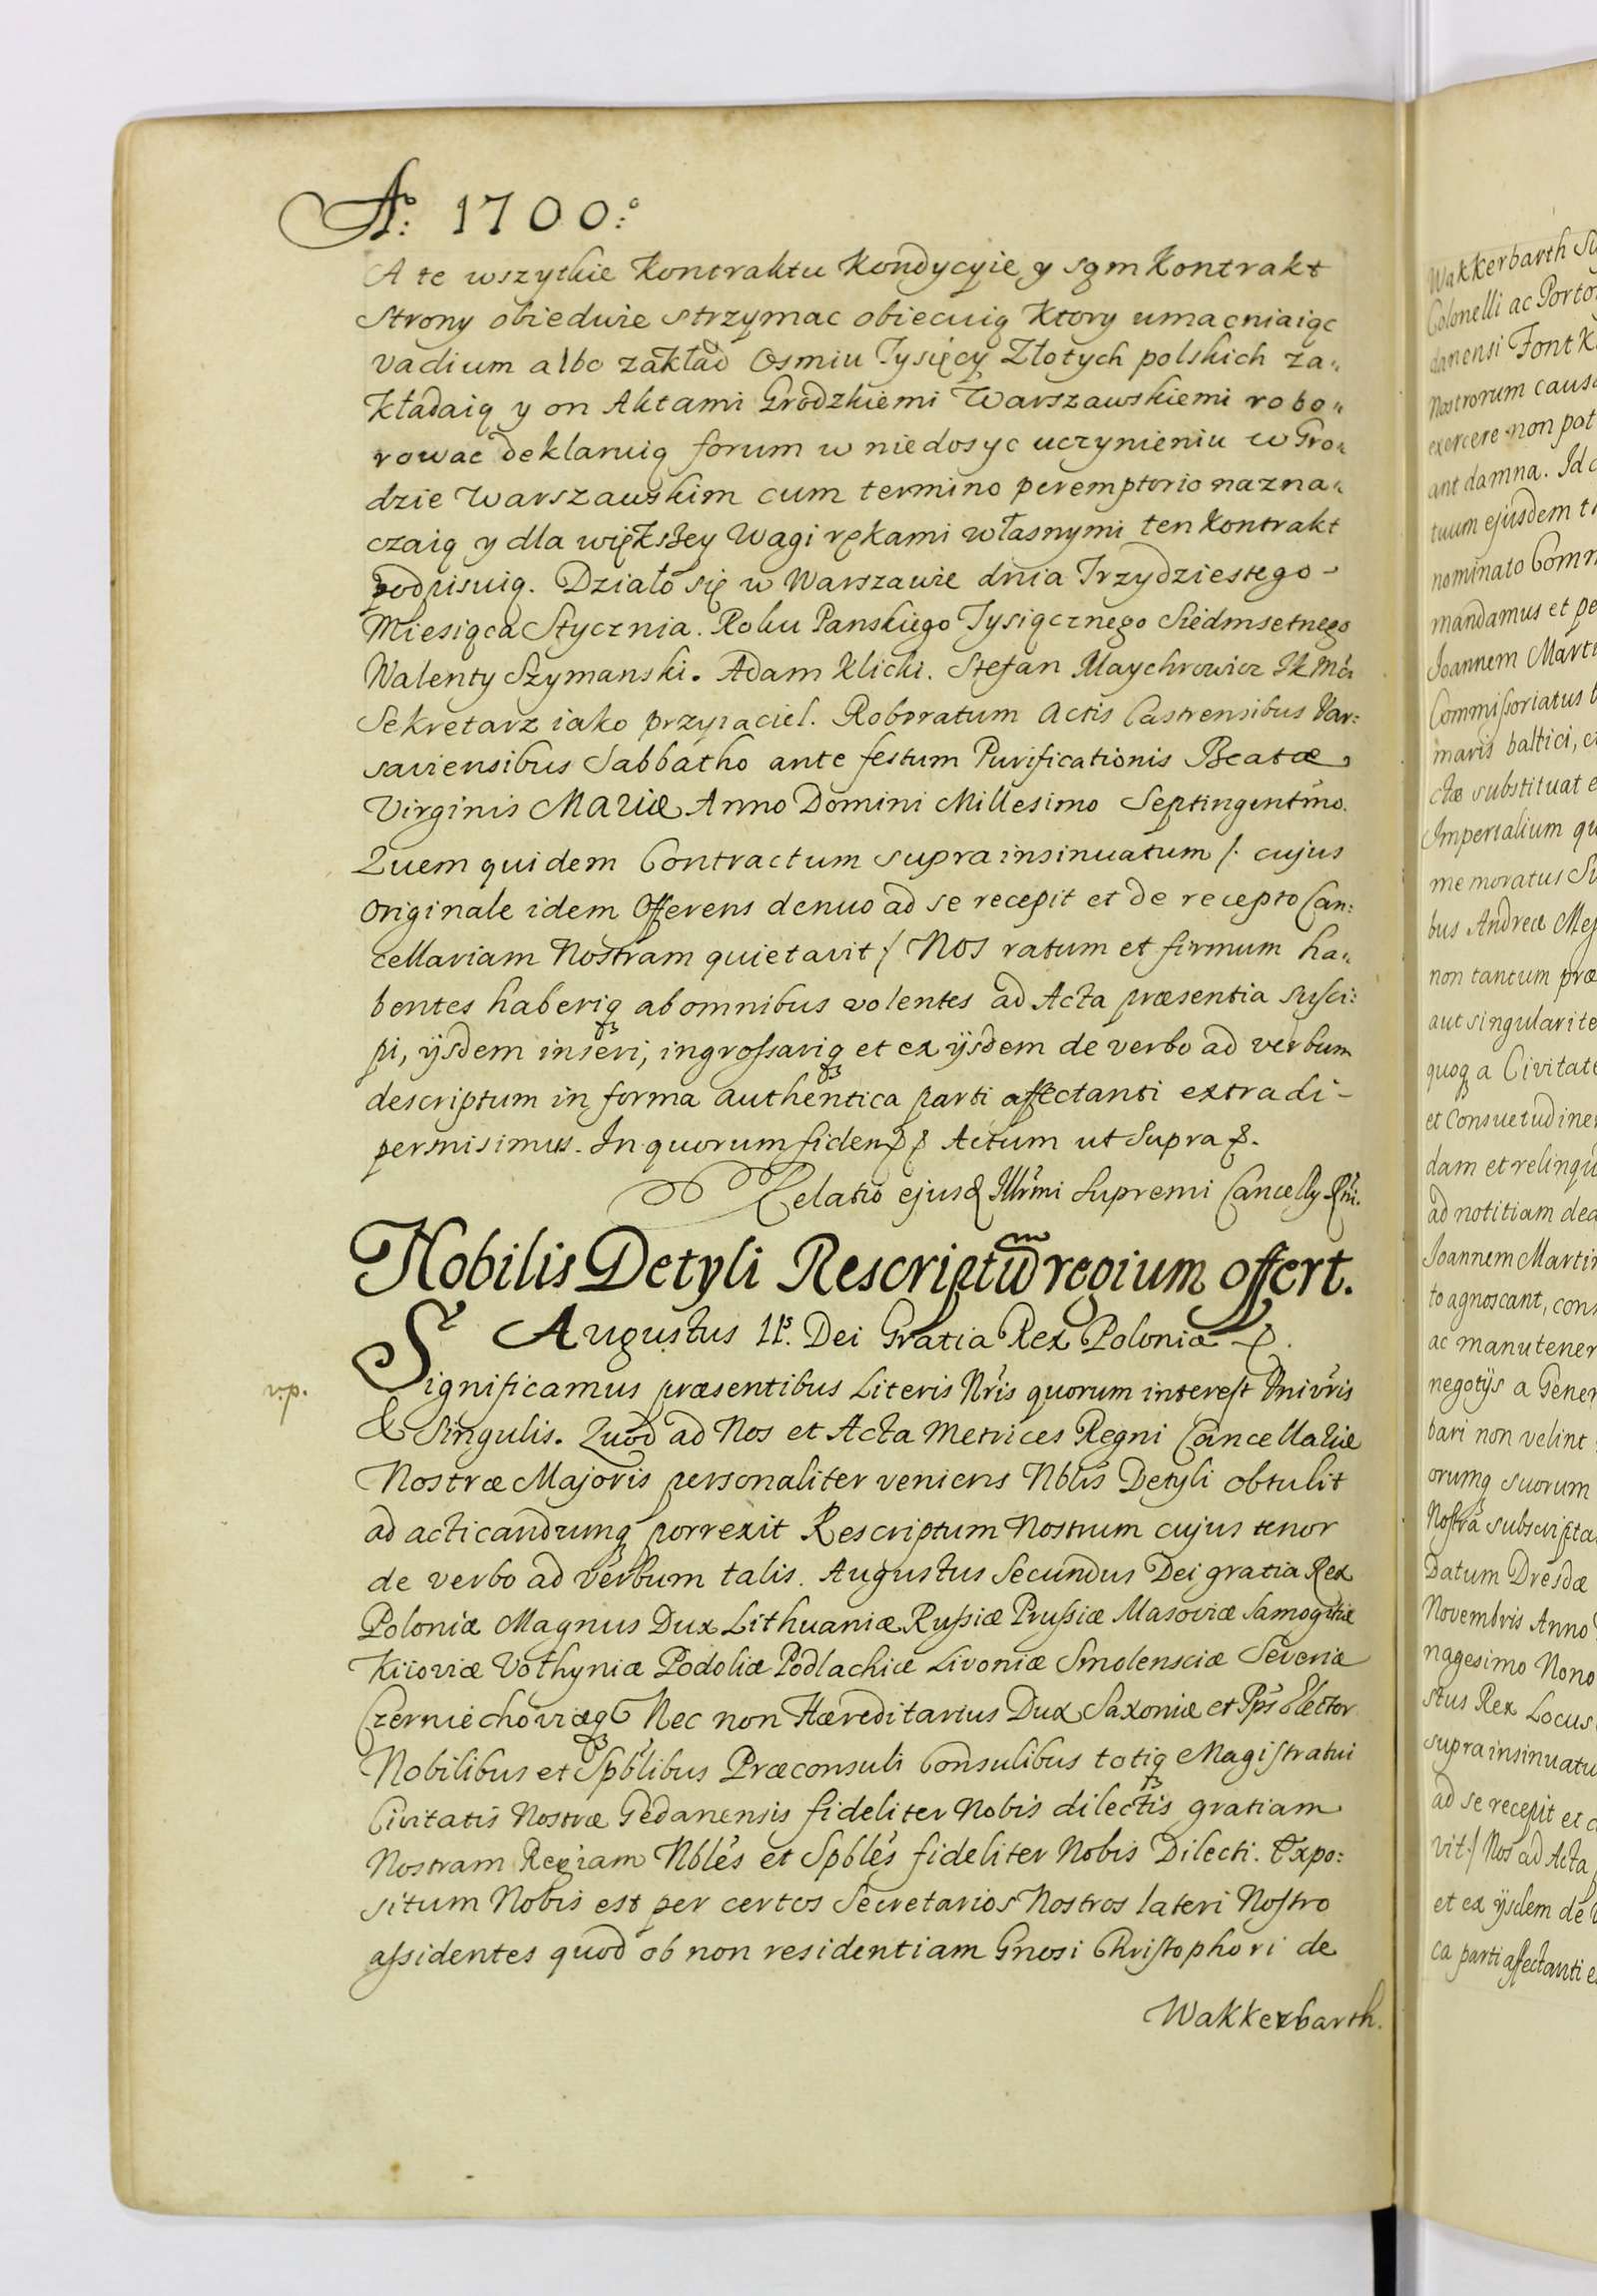 Aº: 1700:º
A te wszytkie Kontraktu Kondycyie y sąm Kontrakt
Strony obiedwie strzymac obiecuią Ktory umacniaiąc
vadium albo zakład Osmiu Tysięcy Złotych polskich za„
kładaią y on Aktami Grodzkiemi Warszawskiemi robo„
rowac deklaruią forum w niedosyc uczynieniu w Gro„
dzie Warszawskim cum termino peremptorio nazna„
czaią y dla większey wagi rękami własnymi ten kontrakt
podpisuią. Działo się w Warszawie dnia Trzydziestego
Miesiąca Stycznia. Roku Panskiego Tysiącznego Siedmsetnego
Walenty Szymanski. Adam Klicki. Stefan Maychrowicz JK Mći
Sekretarz iako przyiaciel. Roboratum Actis Castrensibus Var:
saviensibus Sabbatho ante festum Purificationis Beatæ
Virginis Mariæ Anno Domini Millesimo Septingentmo.
Quem quidem Contractum supra insinuatum /. cujus
Originale idem Offerens denuo ad se recepit et de recepto Can:
cellariam Nostram quietavit / Nos ratum et firmum ha„
bentes haberiq ab omnibus volentes ad Acta præsentia susci:
pi, ijsdem inseri, ingrossariq et ex ijsdem de verbo ad verbum
descriptum in forma authentica parti affectanti extradi-
permisimus. In quorum fidem Actum ut Supra
Relatio ejusd Illrmi Supremi Cancelly Rni.
Nobilis Detyli Rescriptum regium offert.
Augustus IIs. Dei Gratia Rex Poloniæ
v.p.
Significamus præsentibus Literis Nris quorum interest Univris
& Singulis. Quod ad Nos et Acta Metrices Regni Cancellariæ
Nostræ Majoris personaliter veniens Nblis Detyli obtulit
ad acticandumq porrexit Rescriptum Nostrum cujus tenor
de verbo ad verbum talis. Augustus Secundus Dei gratia Rex
Poloniæ Magnus Dux Lithuaniæ Russiæ Prussiæ Masoviæ Samogitiæ
Kijoviæ Volhyniæ Podoliæ Podlachiæ Livoniæ Smolensciæ Severiæ
Czerniechoviæq Nec non Hæreditarius Dux Saxoniæ et Pps Elector
Nobilibus et Spblibus Præconsuli Consulibus totiq Magistratui
Civitatis Nostræ Gedanensis fideliter Nobis dilectis gratiam
Nostram Regiam Nbles et Spbles fideliter Nobis Dilecti. Expo:
situm Nobis est per certos Secretarios Nostros lateri Nostro
assidentes quod ob non residentiam Gnosi Christophori de
Wakkerbarth.
Wakkerbarth
Colonelli ac
danensi Font
Nostrorum
exercere non
ant damna. Id
tuum ejusdem
nominato
mandamus et
Joannem
Commissoriatus
maris baltici,
ctæ substituat
Imperialium
memoratus
bus Andreæ
non tantum
aut
quoq a
et
dam et
ad notitiam
Joannem
to agnoscant,
ac
negotijs a
bari non velint
orumq suorum
Nostra
Datum Dresdæ
Novembris Anno
nagesimo Nono
stus Rex Locus
supra
ad se recepit et
vit / Nos ad Acta
et ex ijsdem de
ca parti affectanti